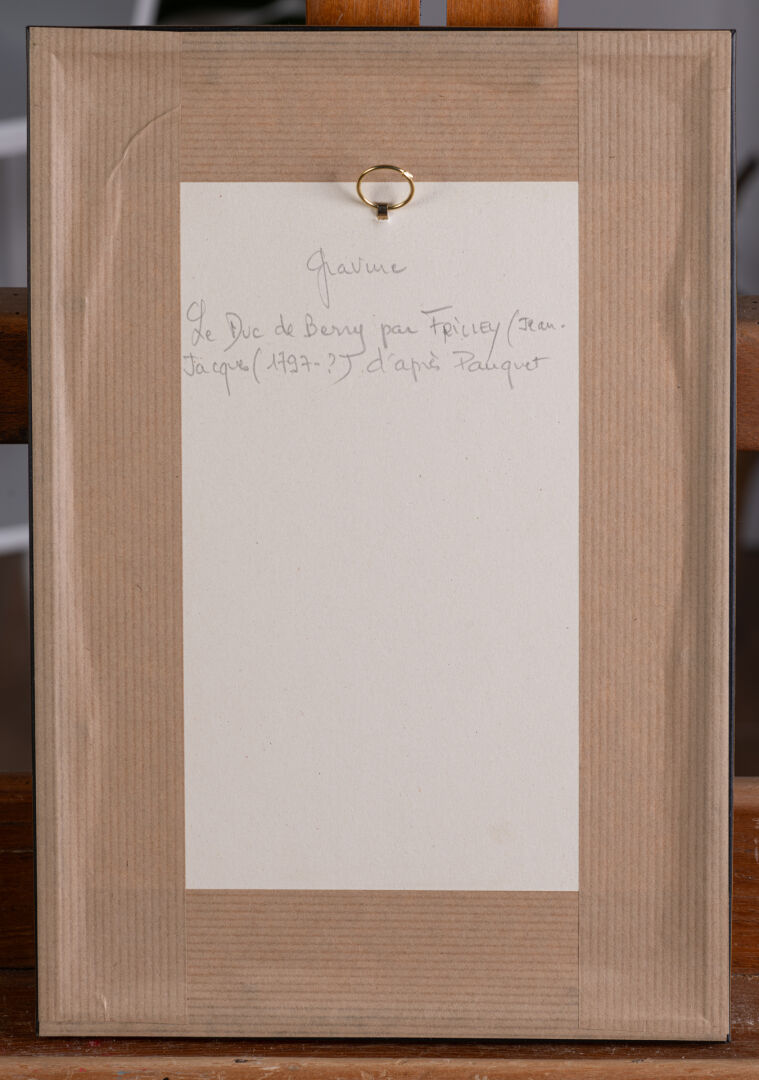 Gravure
Le Duc de Berry par FRILLEY (Jean-
Jacques (1797-?) d'après Pauquet